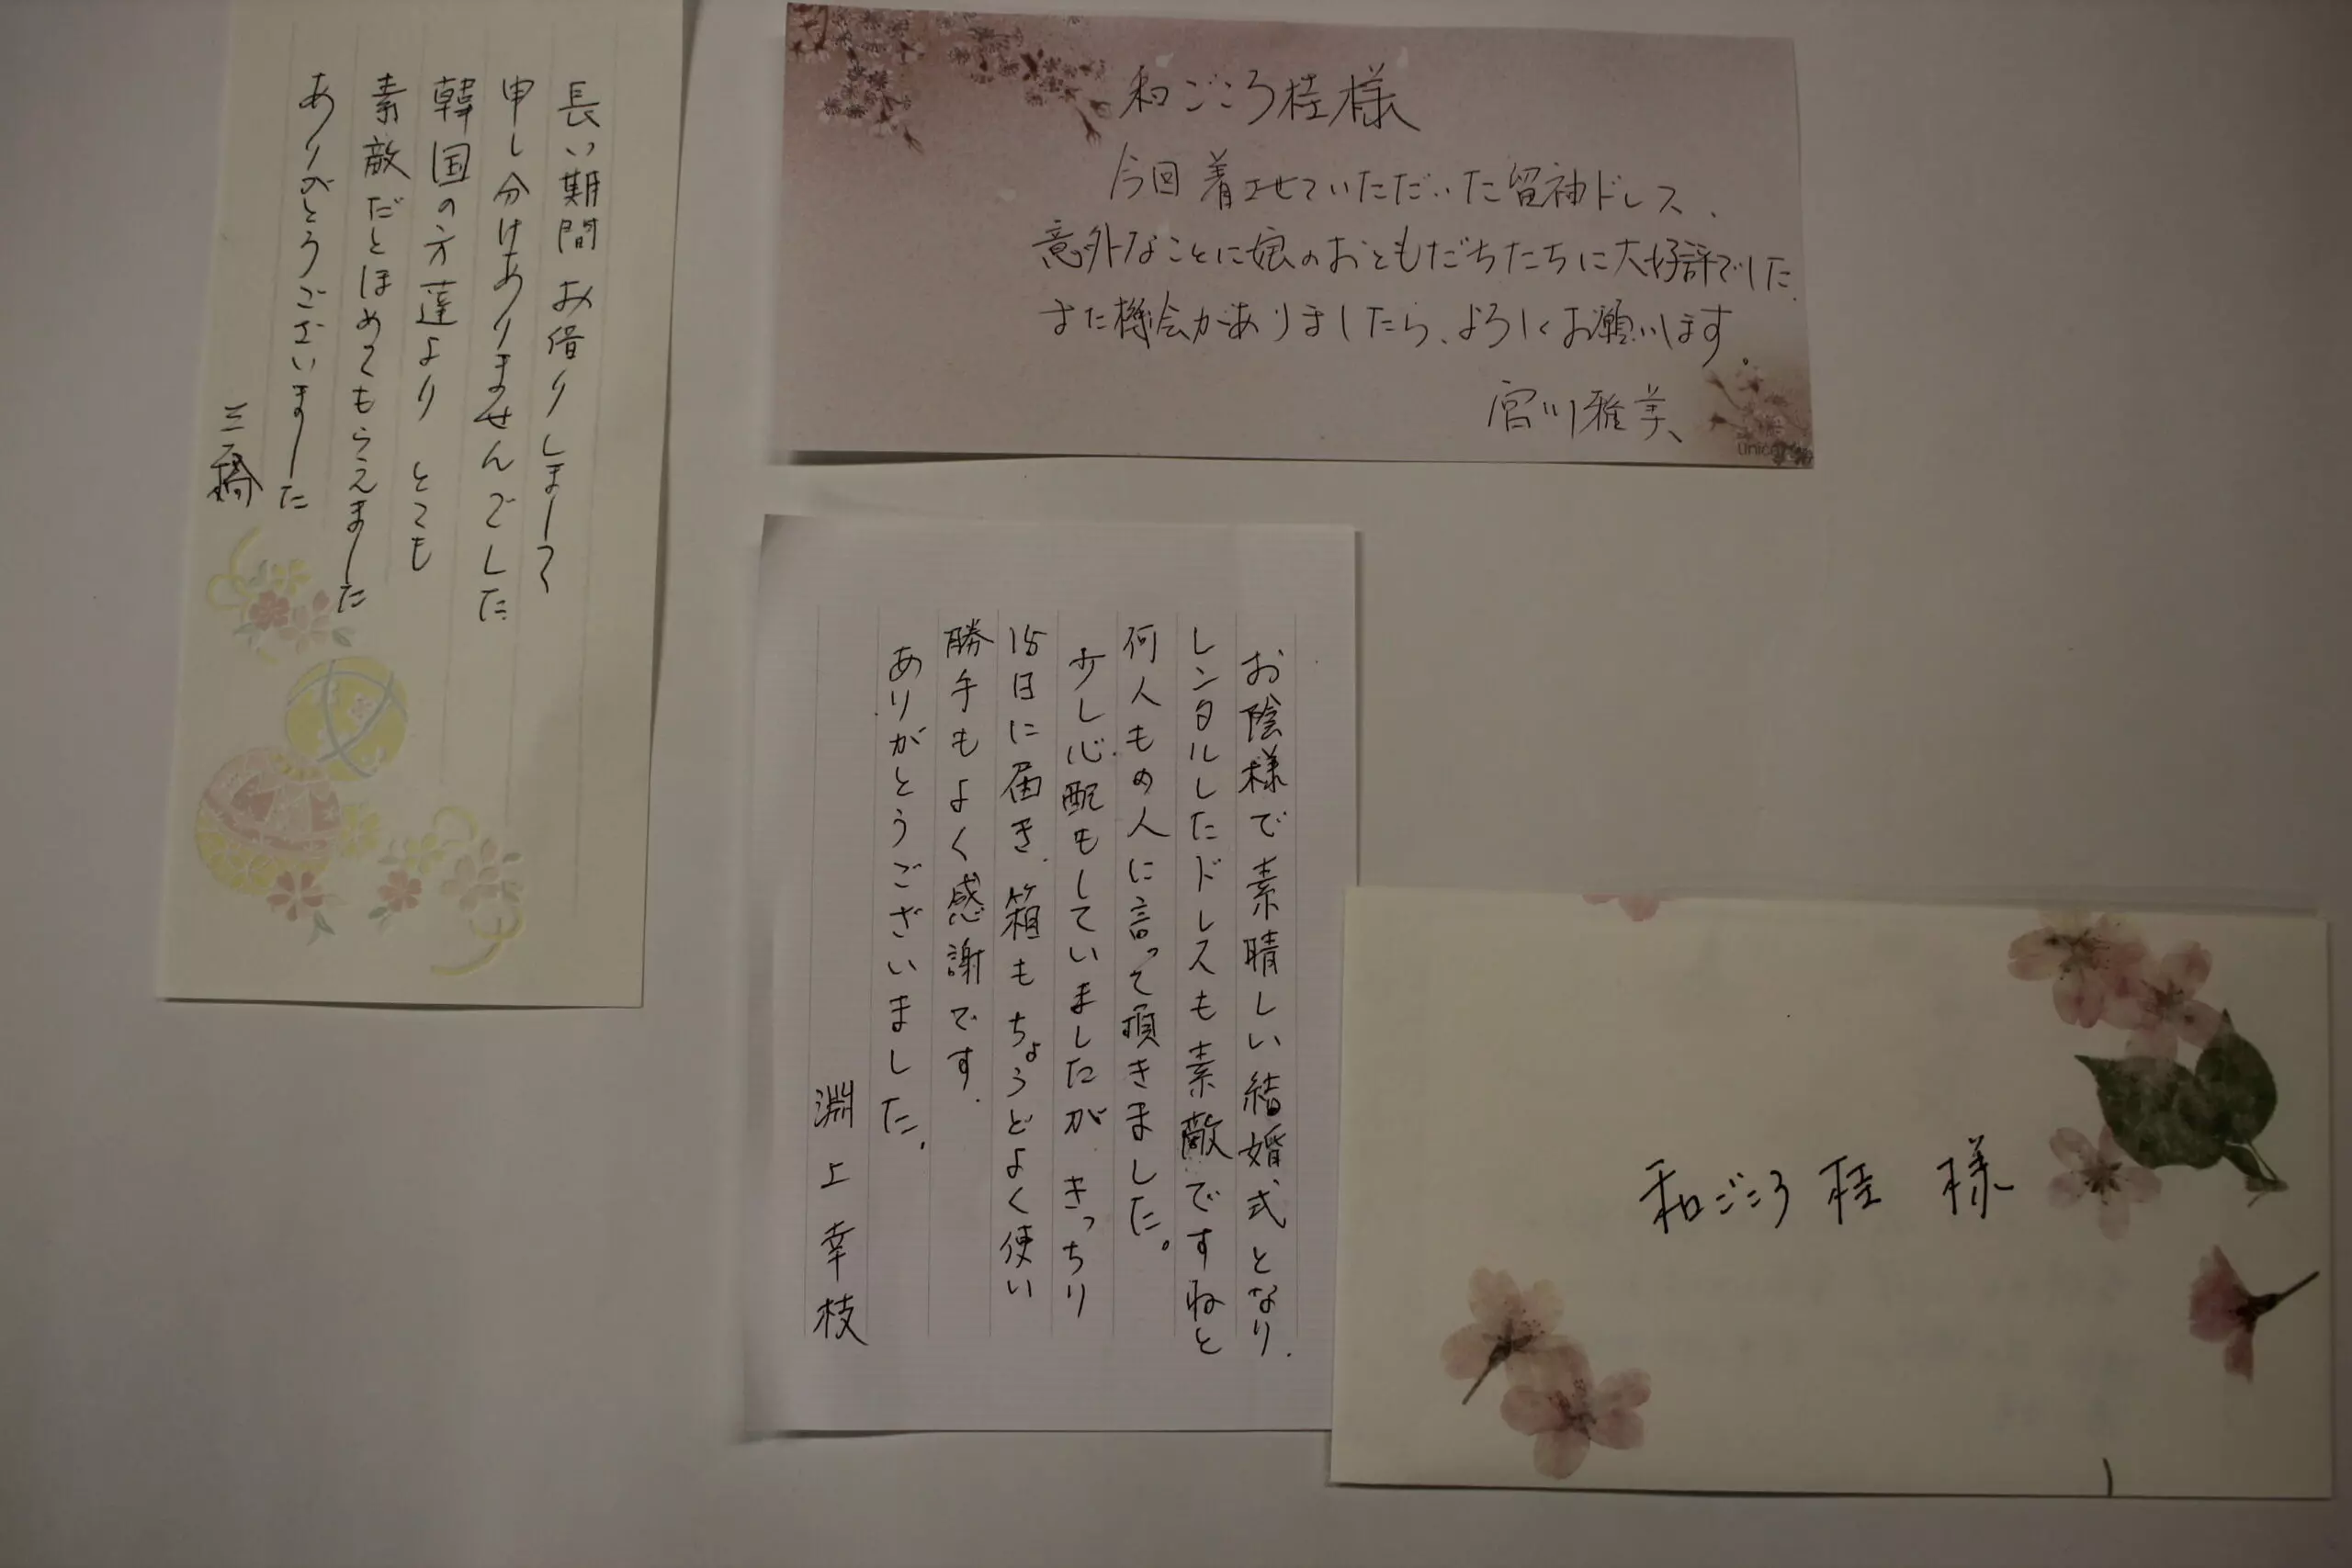 長い期間お借りしまして
申し分けありませんでした
韓国の方達より とても
素敵だとほめてもらえました
ありがとうございました
三橋
和ごころ桂様
今回着させていただいた留袖ドレス、
意外なことに娘のおともだちたちに大好評でした。
また機会がありましたら、よろしくお願いします。
宮川雅美
unic
お陰様で素晴しい結婚式となり、
レンタルしたドレスも素敵ですねと
何人もの人に言って頂きました。
少し心配もしていましたが、きっちり
15日に届き、箱もちょうどよく使い
勝手もよく感謝です。
ありがとうございました。
淵上幸枝
和ごころ 桂 様